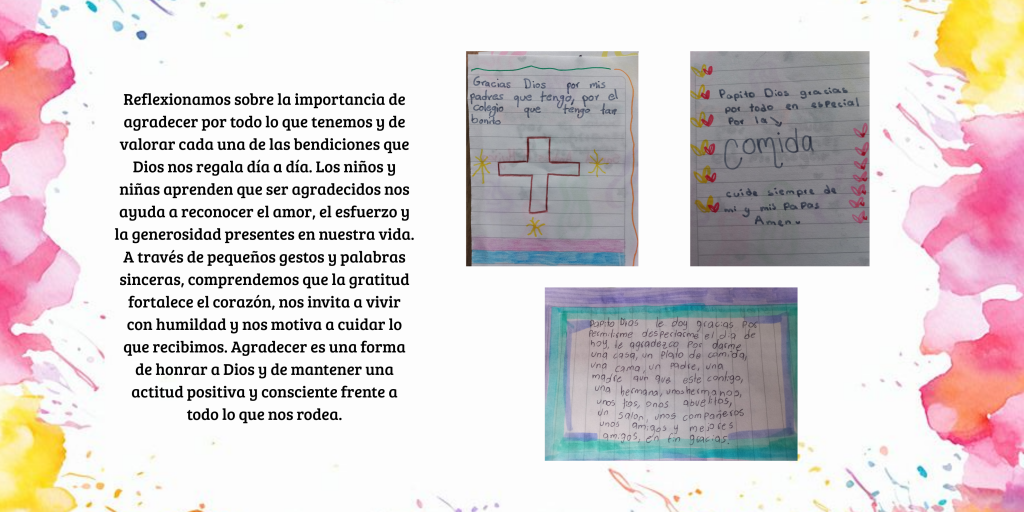 Reflexionamos sobre la importancia de
agradecer por todo lo que tenemos y de
valorar cada una de las bendiciones que
Dios nos regala día a día. Los niños y
niñas aprenden que ser agradecidos nos
ayuda a reconocer el amor, el esfuerzo y
la generosidad presentes en nuestra vida.
A través de pequeños gestos y palabras
sinceras, comprendemos que la gratitud
fortalece el corazón, nos invita a vivir
con humildad y nos motiva a cuidar lo
que recibimos. Agradecer es una forma
de honrar a Dios y de mantener una
actitud positiva y consciente frente a
todo lo que nos rodea.
Gracias Dios por mis
padres que tengo, por el
colegio que tengo tan
bonito
Papito Dios gracias
por todo en especial
Por la
Comida
cuide siempre de
mi y mis Papas
Amen.
Papito Dios le doy gracias por
Permitirme despertarme el dia de
hoy, le agradezco por darme
una casa, un plato de comida,
una cama, un padre, una
madre aun que este contigo,
una hermana, unos hermanos,
unos tios, unos abuelitos,
un salon, unos compañeros
unos amigos y mejores
amigos, en fin gracias.